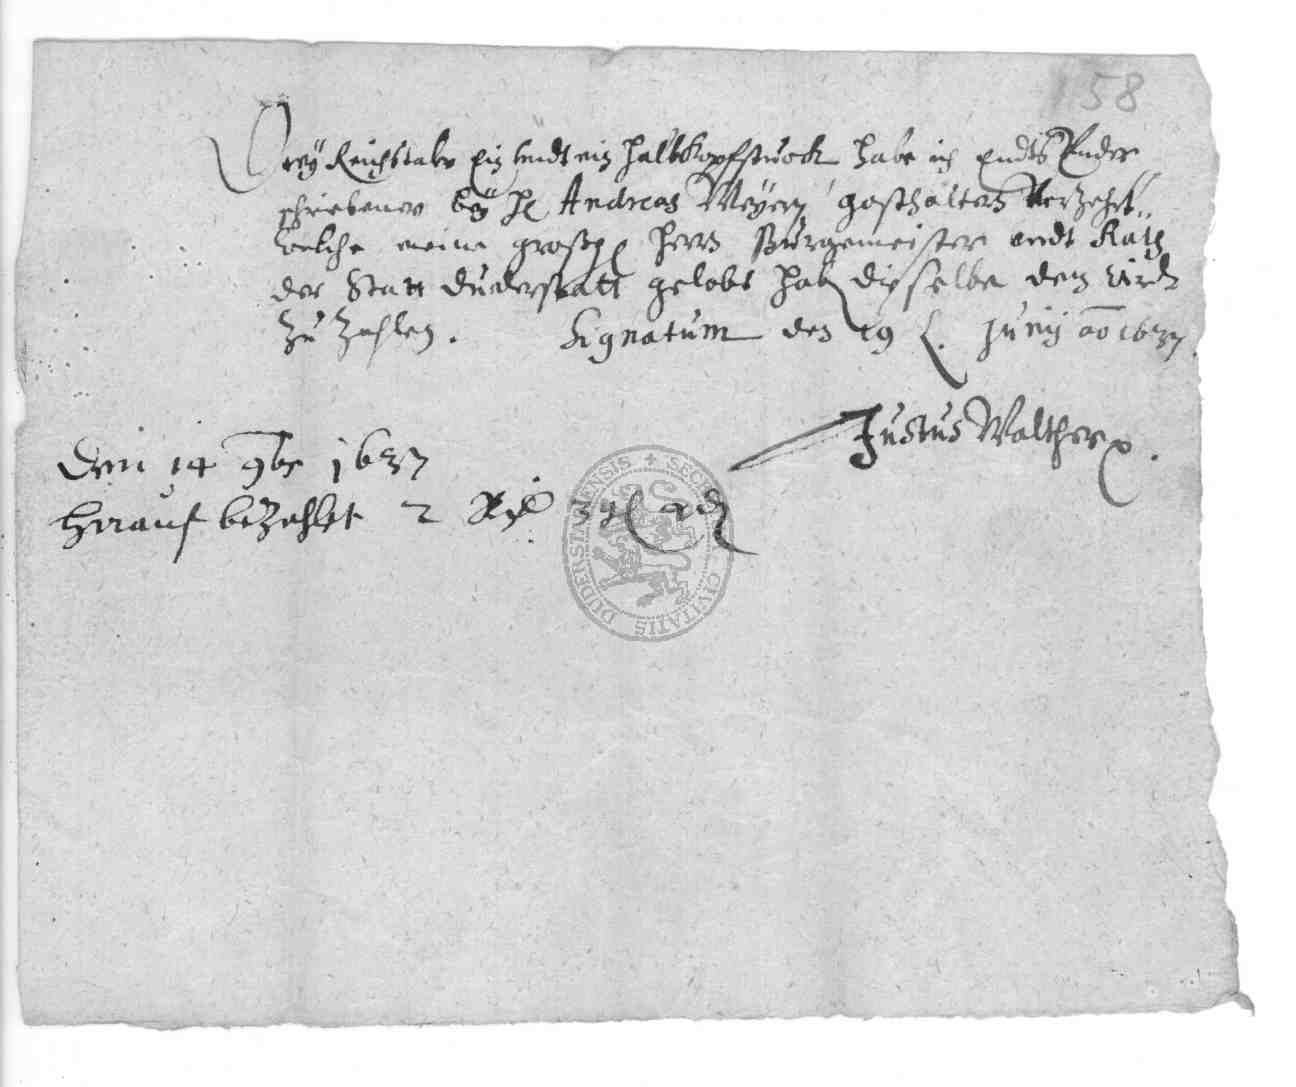 158
Drey Reichstaler Ein undt ein halb Kopfstuock habe ich Endts Under
schriebener bey H. Andreas Meyern gasthaltern verzehrt,
welche meine großg. Herrn Bürgemeister undt Rath
der Statt Duderstatt gelobt hab dieselbe den
Zu Zahlen. Signatum den 19 t. Junij ao 1637.
Justus Walther
Den 14 9br 1637
hirauf bezahlet 2
SECRE CIVITATIS DUDERSTADIENSIS